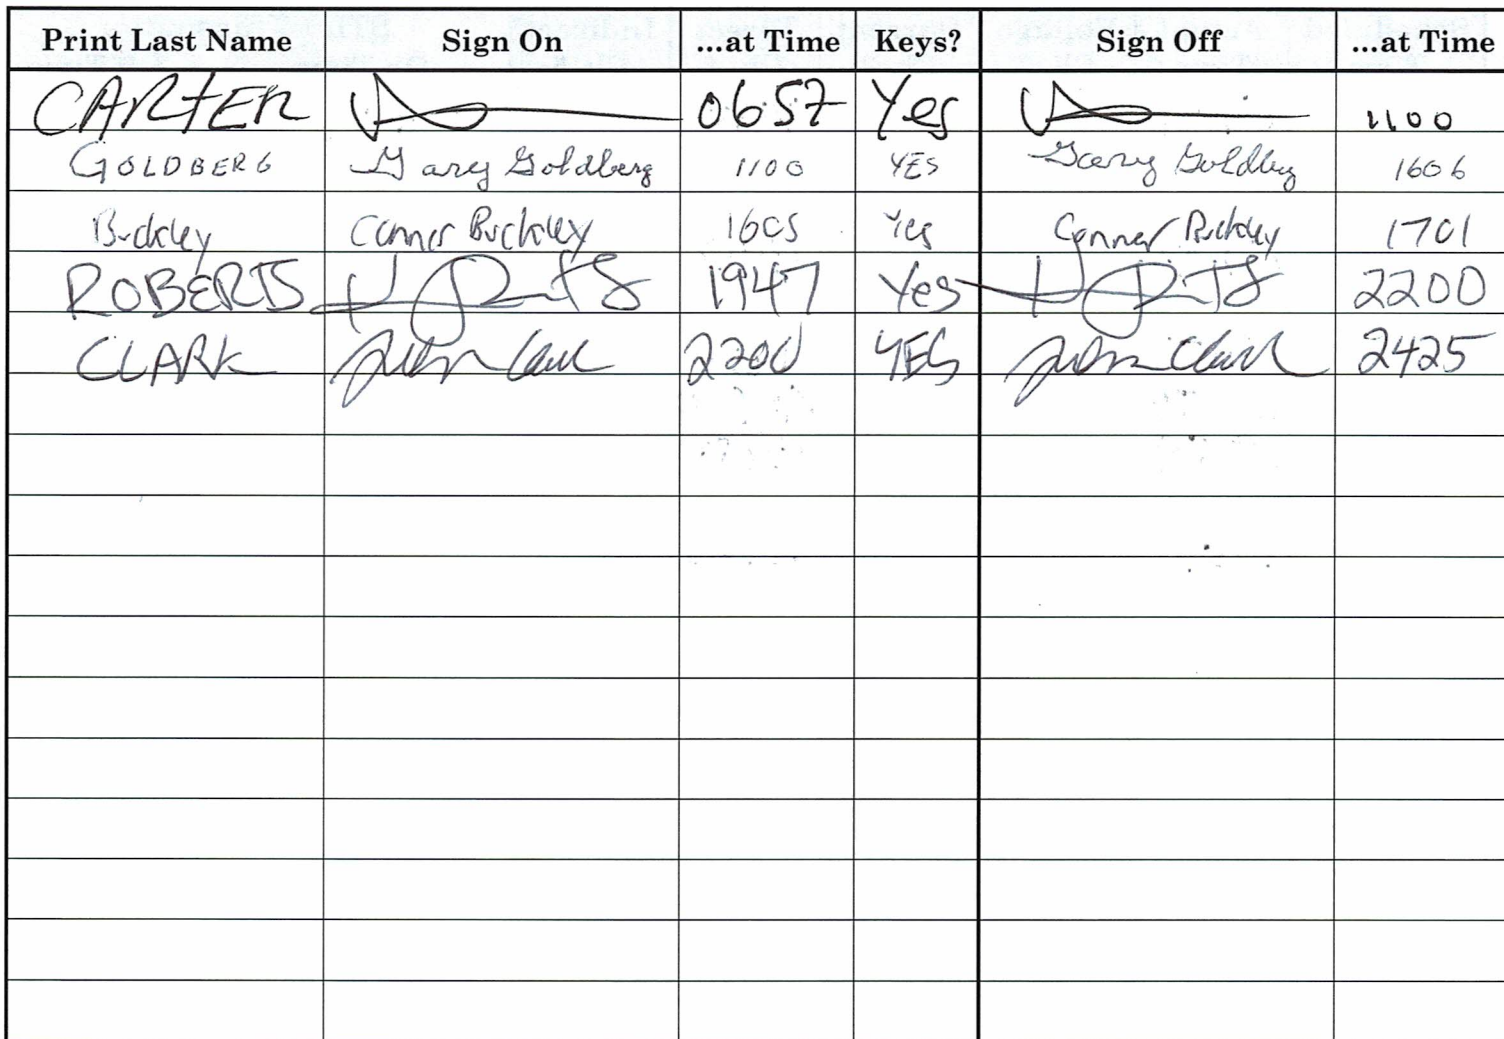 Print Last Name Sign On ...at Time Keys? Sign Off ...at Time
CARTER 0657 Yes 1100
GOLDBERG Gary Goldberg 1100 YES Gary Goldberg 1606
Buckley Conner Buckley 1605 Yes Conner Buckley 1701
ROBERTS 1947 Yes 2200
CLARK John Clark 2200 YES John Clark 2425